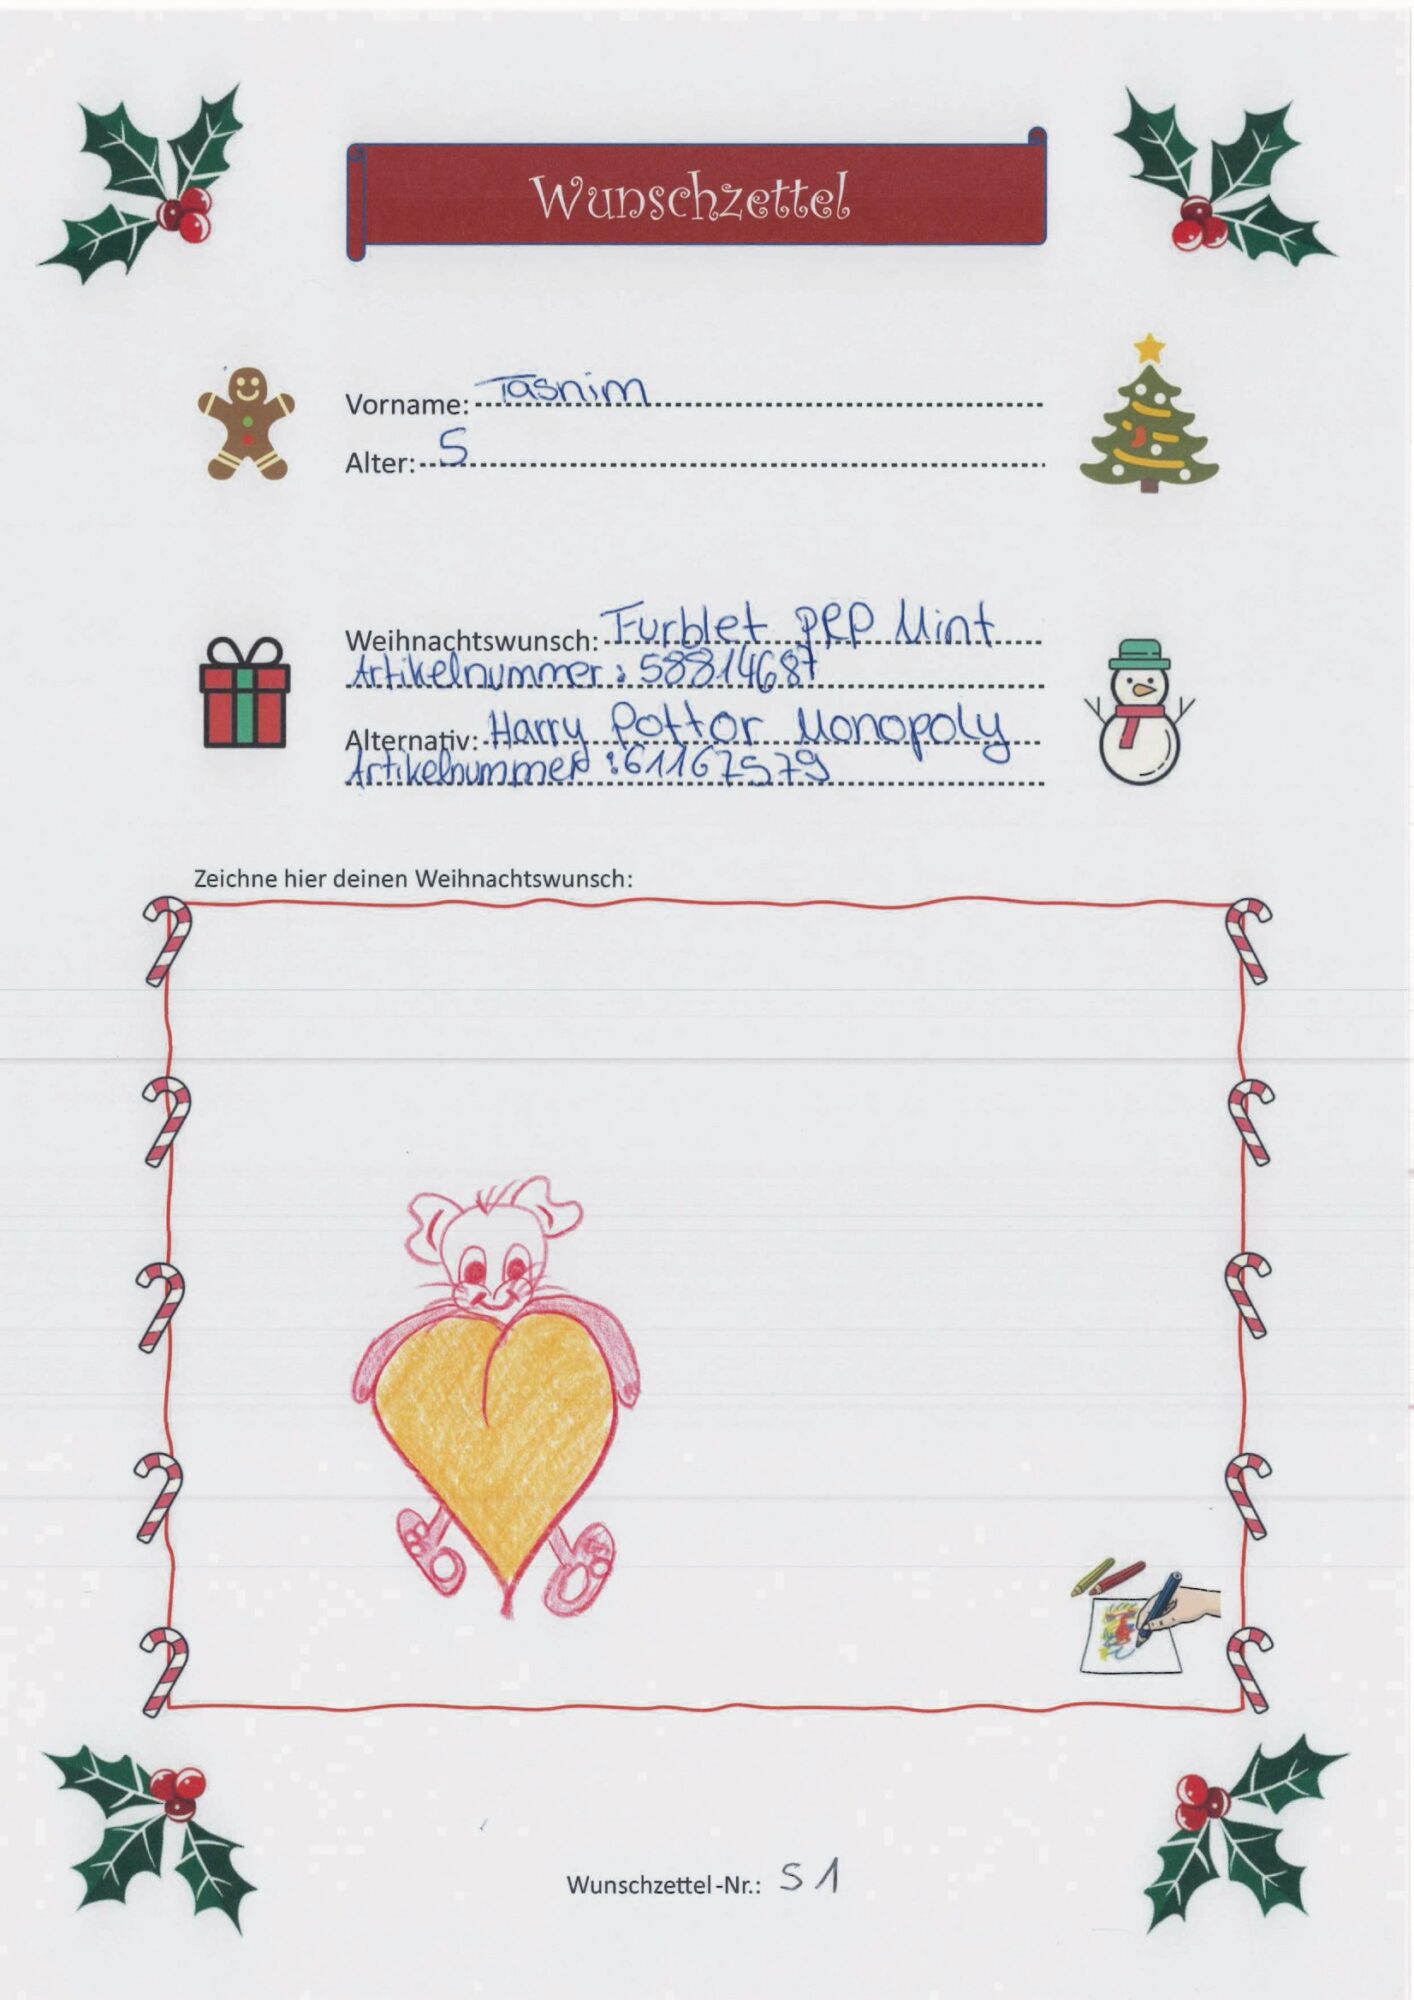 Wunschzettel
Vorname: Tasnim
Alter: 5
Weihnachtswunsch: Furblet PRP Mint
Artikelnummer: 58814687
Alternativ: Harry Pottor Monopoly
Artikelnummer: 61167579
Zeichne hier deinen Weihnachtswunsch:
Wunschzettel-Nr.: 51